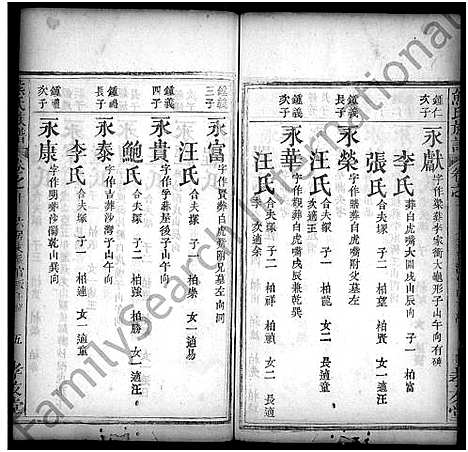 鍾仁
次子
永獻 字作梁葬李家衝大龜形子山午向有碑
李氏 葬白虎嘴大圓戌山辰向 子一 柏富
張氏 合夫塚 子二 柏貴 柏
鍾義
長子
永榮 字作勝葬白虎嘴附父墓左
汪氏 合夫塚 子一 柏龍 女二 長適
次適王
鍾義
次子
永華 字作觀葬白虎嘴戌辰兼乾巽
汪氏 合夫塚 子二 柏祥 柏禎 女二 長適
李 次適余
鍾義
三子
永富 字作賢葬白虎嘴附兄墓左
汪氏 合夫塚 子一 柏樂 女一適易
鍾義
四子
永貴 字作爭葬屋後子山午向
鮑氏 合夫塚 子二 柏強 柏勝 女一適汪
鍾禮
長子
永泰 字作夢葬沙灣子山午向
李氏 合夫塚 子一 柏連 女一適童
鍾禮
次子
永康 字作開葬沙灣乾山巽向
五
孝友堂
FamilySearch International